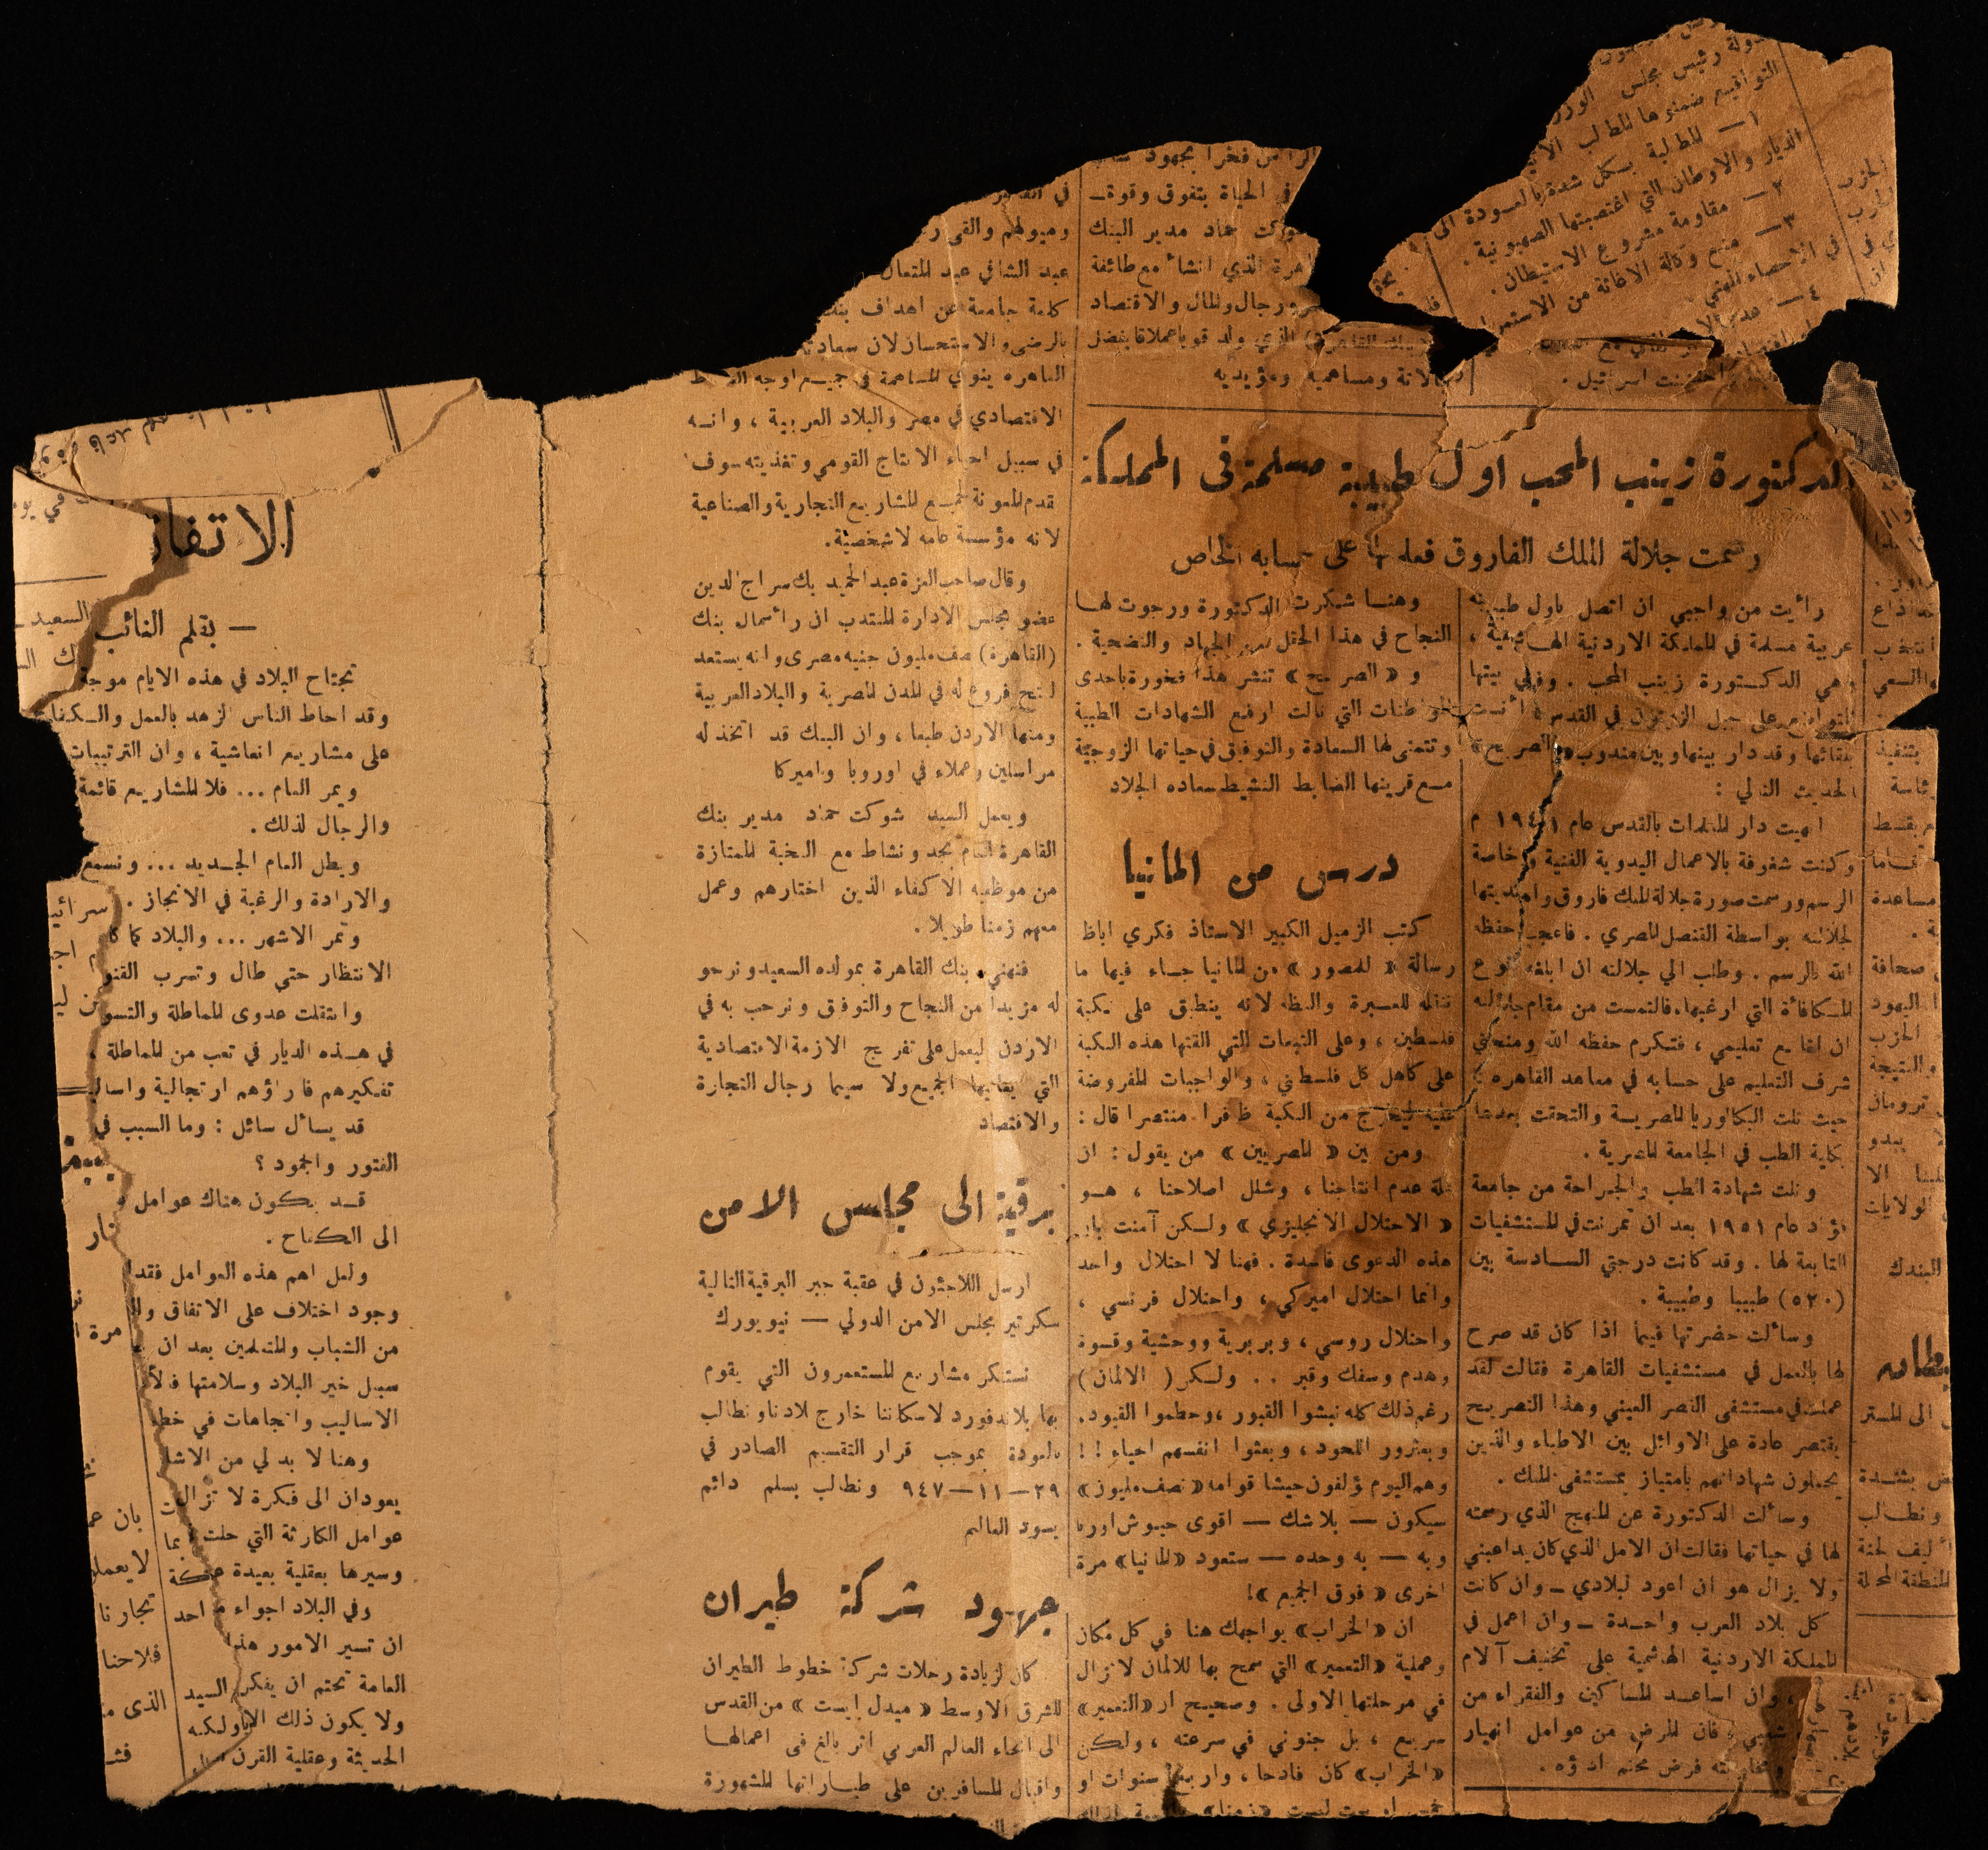 دولة رئيس مجلس الوزر
التواقيع ضمنوها المطالب الا
١ — المطالبة بكل شدة بالعودة الى
الديار والاوطان التي اغتصبتها الصهيونية .
٢ — مقاومة مشروع الاستيطان .
٣ — منع وكالة الاغاثة من الاستمر
في الاحصاء المهني .
٤ —
الحزب
فخرا بجهود
في الحياة بتفوق وقوة
شوكت حماد مدير البنك
الذي انشأ مع طائفة
ورجال المال والاقتصاد
الذي ولد قويا عملاقا بفضل
ومساهميه ومؤيديه
الدكتورة زينب المحب اول طبيبة مسلمة في المملكة
رسمت جلالة الملك الفاروق فعلمها على حسابه الخاص
رأيت من واجبي ان اتصل باول طبيبة
عربية مسلمة في المملكة الاردنية الهاشمية ،
وهي الدكتورة زينب المحب . وفي بيتها
المتواضع على جبل الزيتون في القدس أنست
بلقائها وقد دار بينها وبين مندوب «الصريح»
الحديث التالي :
انهيت دار المعلمات بالقدس عام ١٩٤١ م
وكنت شغوفة بالاعمال اليدوية الفنية وخاصة
الرسم ورسمت صورة جلالة الملك فاروق واهديتها
لجلالته بواسطة القنصل المصري . فاعجب حفظه
الله بالرسم . وطلب الي جلالته ان ابلغه نوع
المكافأة التي ارغبها. فالتمست من مقام جلالته
ان اتابع تعليمي ، فتكرم حفظه الله ومنحني
شرف التعليم على حسابه في معاهد القاهرة ؛
حيث نلت البكالوريا المصرية والتحقت بعدها
بكلية الطب في الجامعة المصرية .
ونلت شهادة الطب والجراحة من جامعة
فؤاد عام ١٩٥١ بعد ان تمرنت في المستشفيات
التابعة لها . وقد كانت درجتي السادسة بين
(٥٢٠) طبيبا وطبيبة .
وسألت حضرتها فيما اذا كان قد صرح
لها بالعمل في مستشفيات القاهرة فقالت لقد
عملت في مستشفى القصر العيني وهذا التصريح
يقتصر عادة على الاوائل بين الاطباء والذين
يحملون شهاداتهم بامتياز بمستشفى الملك .
وسألت الدكتورة عن المنهج الذي رسمته
لها في حياتها فقالت ان الامل الذي كان يداعبني
ولا يزال هو ان اعود لبلادي — وان كانت
كل بلاد العرب واحدة — وان اعمل في
المملكة الاردنية الهاشمية على تخفيف آلام
، وان اساعد المساكين والفقراء من
شعبي ، فان المرض من عوامل انهيار
فرض محتم اداؤه .
وهنا شكرت الدكتورة ورجوت لها
النجاح في هذا الحقل من الجهاد والتضحية .
و « الصريح » تنشر هذا فخورة باحدى
المواطنات التي نالت ارفع الشهادات الطبية
وتتمنى لها السعادة والتوفيق في حياتها الزوجية
مع قرينها الضابط النشيط سعاده الجلاد
درس من المانيا
كتب الزميل الكبير الاستاذ فكري اباظ
رسالة « للمصور » من المانيا جاء فيها ما
ننقله للعبرة والعظة لانه ينطبق على نكبة
فلسطين ، وعلى التبعات التي القتها هذه النكبة
على كاهل كل فلسطيني ، والواجبات المفروضة
عليه ليخرج من النكبة ظافرا منتصرا قال :
ومن بين « المصريين » من يقول : ان
علة عدم انتاجنا ، وشلل اصلاحنا ، هو
« الاحتلال الانجليزي » ولكن آمنت بان
هذه الدعوى فاسدة . فهنا لا احتلال واحد
وانما احتلال اميركي ، واحتلال فرنسي ،
واحتلال روسي ، وبربرية ووحشية وقسوة
وهدم وسفك وقبر . . ولكن ( الالمان )
رغم ذلك كله نبشوا القبور ، وحطموا القيود.
وبعثروا اللحود ، وبعثوا انفسهم احياء !!
وهم اليوم يؤلفون جيشا قوامه «نصف مليون»
سيكون — بلا شك — اقوى جيوش اوربا
وبه — به وحده — ستعود «المانيا» مرة
اخرى « فوق الجميع »!
ان «الخراب» يواجهك هنا في كل مكان
وعملية «التعمير» التي سمح بها للالمان لا تزال
في مرحلتها الاولى . وصحيح ان «التعمير»
سريع ، بل جنوني في سرعته ، ولكن
«الخراب» كان فادحا ، واربع سنوات او
وميولهم والقى
عبد الشافي عبد المتعال
كلمة جامعة عن اهداف بنك
بالرضى والاستحسان لان سعادته
القاهرة ينوي المساهمة في جميع اوجه
الاقتصادي في مصر والبلاد العربية ، وانه
في سبيل احياء الانتاج القومي وتغذيته سوف
يقدم المعونة لجميع المشاريع التجارية والصناعية
لانه مؤسسة عامه لا شخصية.
وقال صاحب العزة عبد الحميد بك سراج الدين
عضو مجلس الادارة المنتدب ان رأسمال بنك
(القاهرة) نصف مليون جنيه مصرى وانه يستعد
لفتح فروع له في المدن المصرية والبلاد العربية
ومنها الاردن طبعا ، وان البنك قد اتخذ له
مراسلين وعملاء في اوروبا واميركا
ويعمل السيد شوكت حماد مدير بنك
القاهرة العام بجد ونشاط مع النخبة الممتازة
من موظفيه الاكفاء الذين اختارهم وعمل
معهم زمنا طويلا .
فنهنيء بنك القاهرة بمولده السعيد ونرجو
له مزيدا من النجاح والتوفيق ونرحب به في
الاردن ليعمل على تفريج الازمة الاقتصادية
التي يعانيها الجميع ولا سيما رجال التجارة
والاقتصاد
برقية الى مجلس الامن
ارسل اللاجئون في عقبة جبر البرقية التالية
سكرتير مجلس الامن الدولي — نيويورك
نستنكر مشاريع المستعمرون التي يقوم
بها بلاندفورد لاسكاننا خارج بلادنا ونطالب
بالعودة بموجب قرار التقسيم الصادر في
٢٩—١١—٩٤٧ ونطالب بسلم دائم
يسود العالم
جهود شركة طيران
كان لزيادة رحلات شركة خطوط الطيران
للشرق الاوسط « ميدل ايست » من القدس
الى انحاء العالم العربي اثر بالغ في اعمالها
واقبال المسافرين على طياراتها المشهورة
الاتفاق
— بقلم النائب
تجتاح البلاد في هذه الايام موجة
وقد احاط الناس الزهد بالعمل والكفا
على مشاريع انعاشية ، وان الترتيبات
ويمر العام ... فلا المشاريع قائمة
والرجال لذلك .
ويطل العام الجديد ... ونسمع
والارادة والرغبة في الانجاز .
وتمر الاشهر ... والبلاد كما كا
الانتظار حتى طال وتسرب القنو
وانتقلت عدوى المماطلة والتسو
في هذه الديار في تعب من المماطلة ،
تفكيرهم فاراؤهم ارتجالية واسالي
قد يسأل سائل : وما السبب في
الفتور والجمود ؟
قد يكون هناك عوامل
الى الكفاح .
ولعل اهم هذه العوامل فقدا
وجود اختلاف على الاتفاق وال
من الشباب والمتعلمين بعد ان
سبيل خير البلاد وسلامتها فالا
الاساليب واتجاهات في خط
وهنا لا بد لي من الاشا
يعودان الى فكرة لا تزال
عوامل الكارثة التي حلت بما
وسيرها بعقلية بعيدة
وفي البلاد اجواء
ان تسير الامور هذا
العامة تحتم ان يفكر السيد
ولا يكون ذلك الا
الحديثة وعقلية القرن
السعيد
بان
لا يعمل
تجارنا
فلاحنا
الذى
مرة
اذاع
انتخب
والسعي
بتنفيذ
مساعدة
صحافة
اليهود
الحزب
والنتيجة
ترومان
يبدو
الا
الولايات
البندك
الى المستر
بشدة
ونطالب
لجنة
المنطقة المحتلة